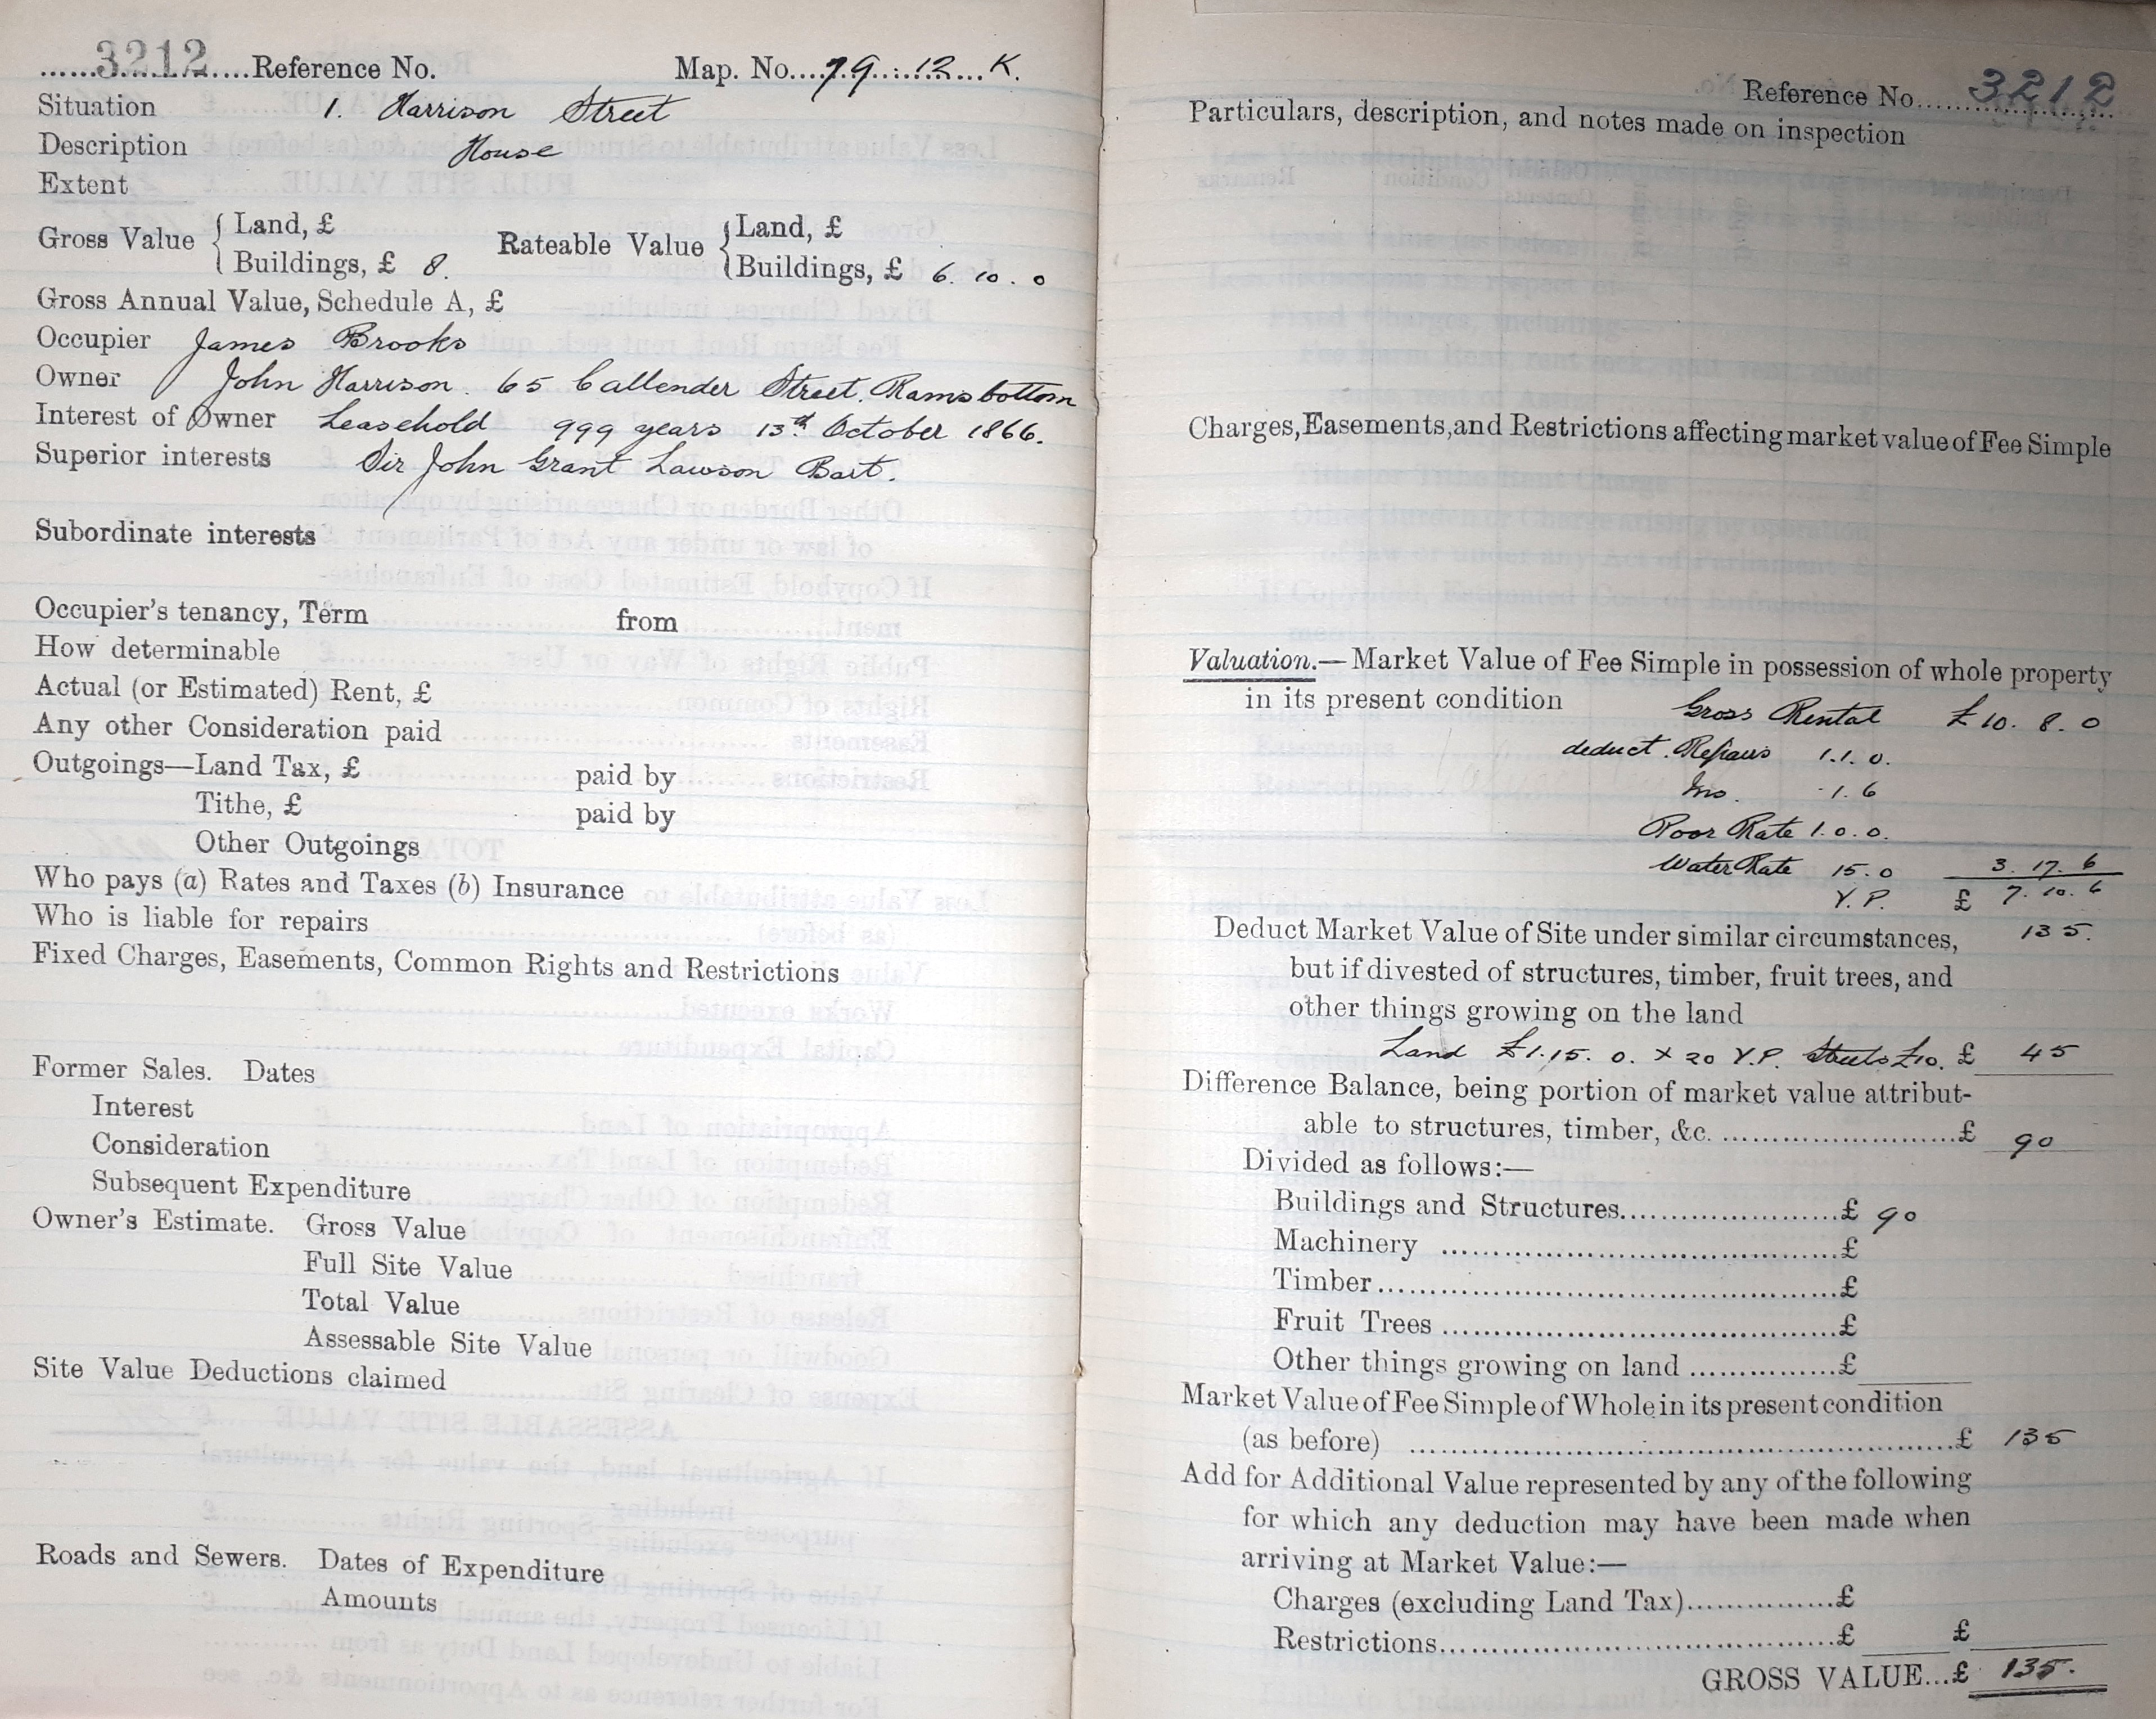 3212 Reference No. Map. No. 79 : 12 K.
Situation 1. Harrison Street
Description House
Extent
Gross Value { Land, £ Rateable Value { Land, £
Buildings, £ 8. Buildings, £ 6. 10. 0
Gross Annual Value, Schedule A, £
Occupier James Brooks
Owner John Harrison. 65 Callender Street. Ramsbottom
Interest of Owner Leasehold 999 years 13th October 1866.
Superior interests Sir John Grant Lawson Bart.
Subordinate interests
Occupier's tenancy, Term from
How determinable
Actual (or Estimated) Rent, £
Any other Consideration paid
Outgoings—Land Tax, £ paid by
Tithe, £ paid by
Other Outgoings
Who pays (a) Rates and Taxes (b) Insurance
Who is liable for repairs
Fixed Charges, Easements, Common Rights and Restrictions
Former Sales. Dates
Interest
Consideration
Subsequent Expenditure
Owner's Estimate. Gross Value
Full Site Value
Total Value
Assessable Site Value
Site Value Deductions claimed
Roads and Sewers. Dates of Expenditure
Amounts
Reference No. 3212
Particulars, description, and notes made on inspection
Charges, Easements, and Restrictions affecting market value of Fee Simple
Valuation.—Market Value of Fee Simple in possession of whole property
in its present condition Gross Rental £10. 8. 0
deduct. Repairs 1.1.0.
Ins. 1.6
Poor Rate 1.0.0.
Water Rate 15.0 3. 17. 6
Y.P. £ 7. 10. 6
Deduct Market Value of Site under similar circumstances, 135.
but if divested of structures, timber, fruit trees, and
other things growing on the land
Land £1.15. 0. x 20 Y.P. Streets £10. £ 45
Difference Balance, being portion of market value attribut-
able to structures, timber, &c. £ 90
Divided as follows:—
Buildings and Structures £ 90
Machinery £
Timber £
Fruit Trees £
Other things growing on land £
Market Value of Fee Simple of Whole in its present condition
(as before) £ 135
Add for Additional Value represented by any of the following
for which any deduction may have been made when
arriving at Market Value:—
Charges (excluding Land Tax) £
Restrictions £ £
GROSS VALUE...£ 135.